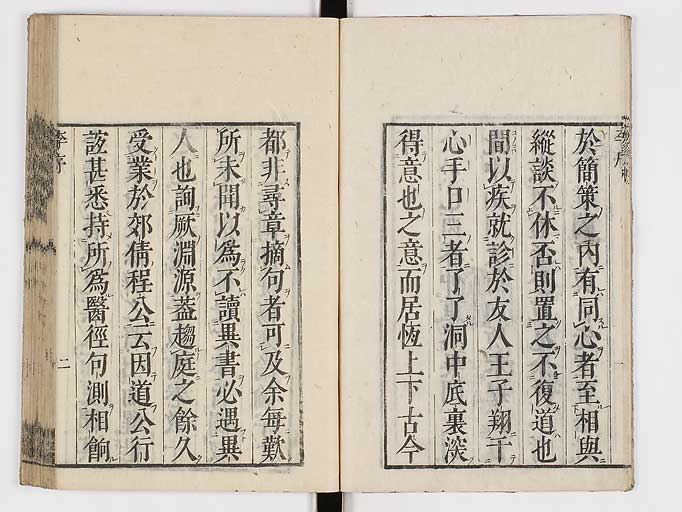 於簡策之內有同心者至相與
縱談不休否則置之不復道也
間以疾就診於友人王子翔千
心手口三者了了洞中底裏淡
得意也之意而居恆上下古今
都非尋章摘句者可及余每歎
所未聞以爲不讀異書必遇異
人也詢厥淵源葢趨庭之餘久
受業於郊倩程公云因道公行
該甚悉持所爲醫徑句測相餉
李序
二